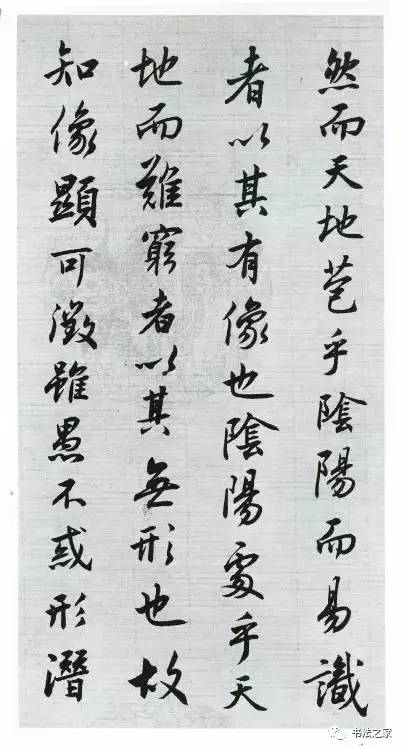 然而天地苞乎陰陽而易識
者以其有像也陰陽處乎天
地而難窮者以其無形也故
知像顯可徵雖愚不惑形潛
书法之家